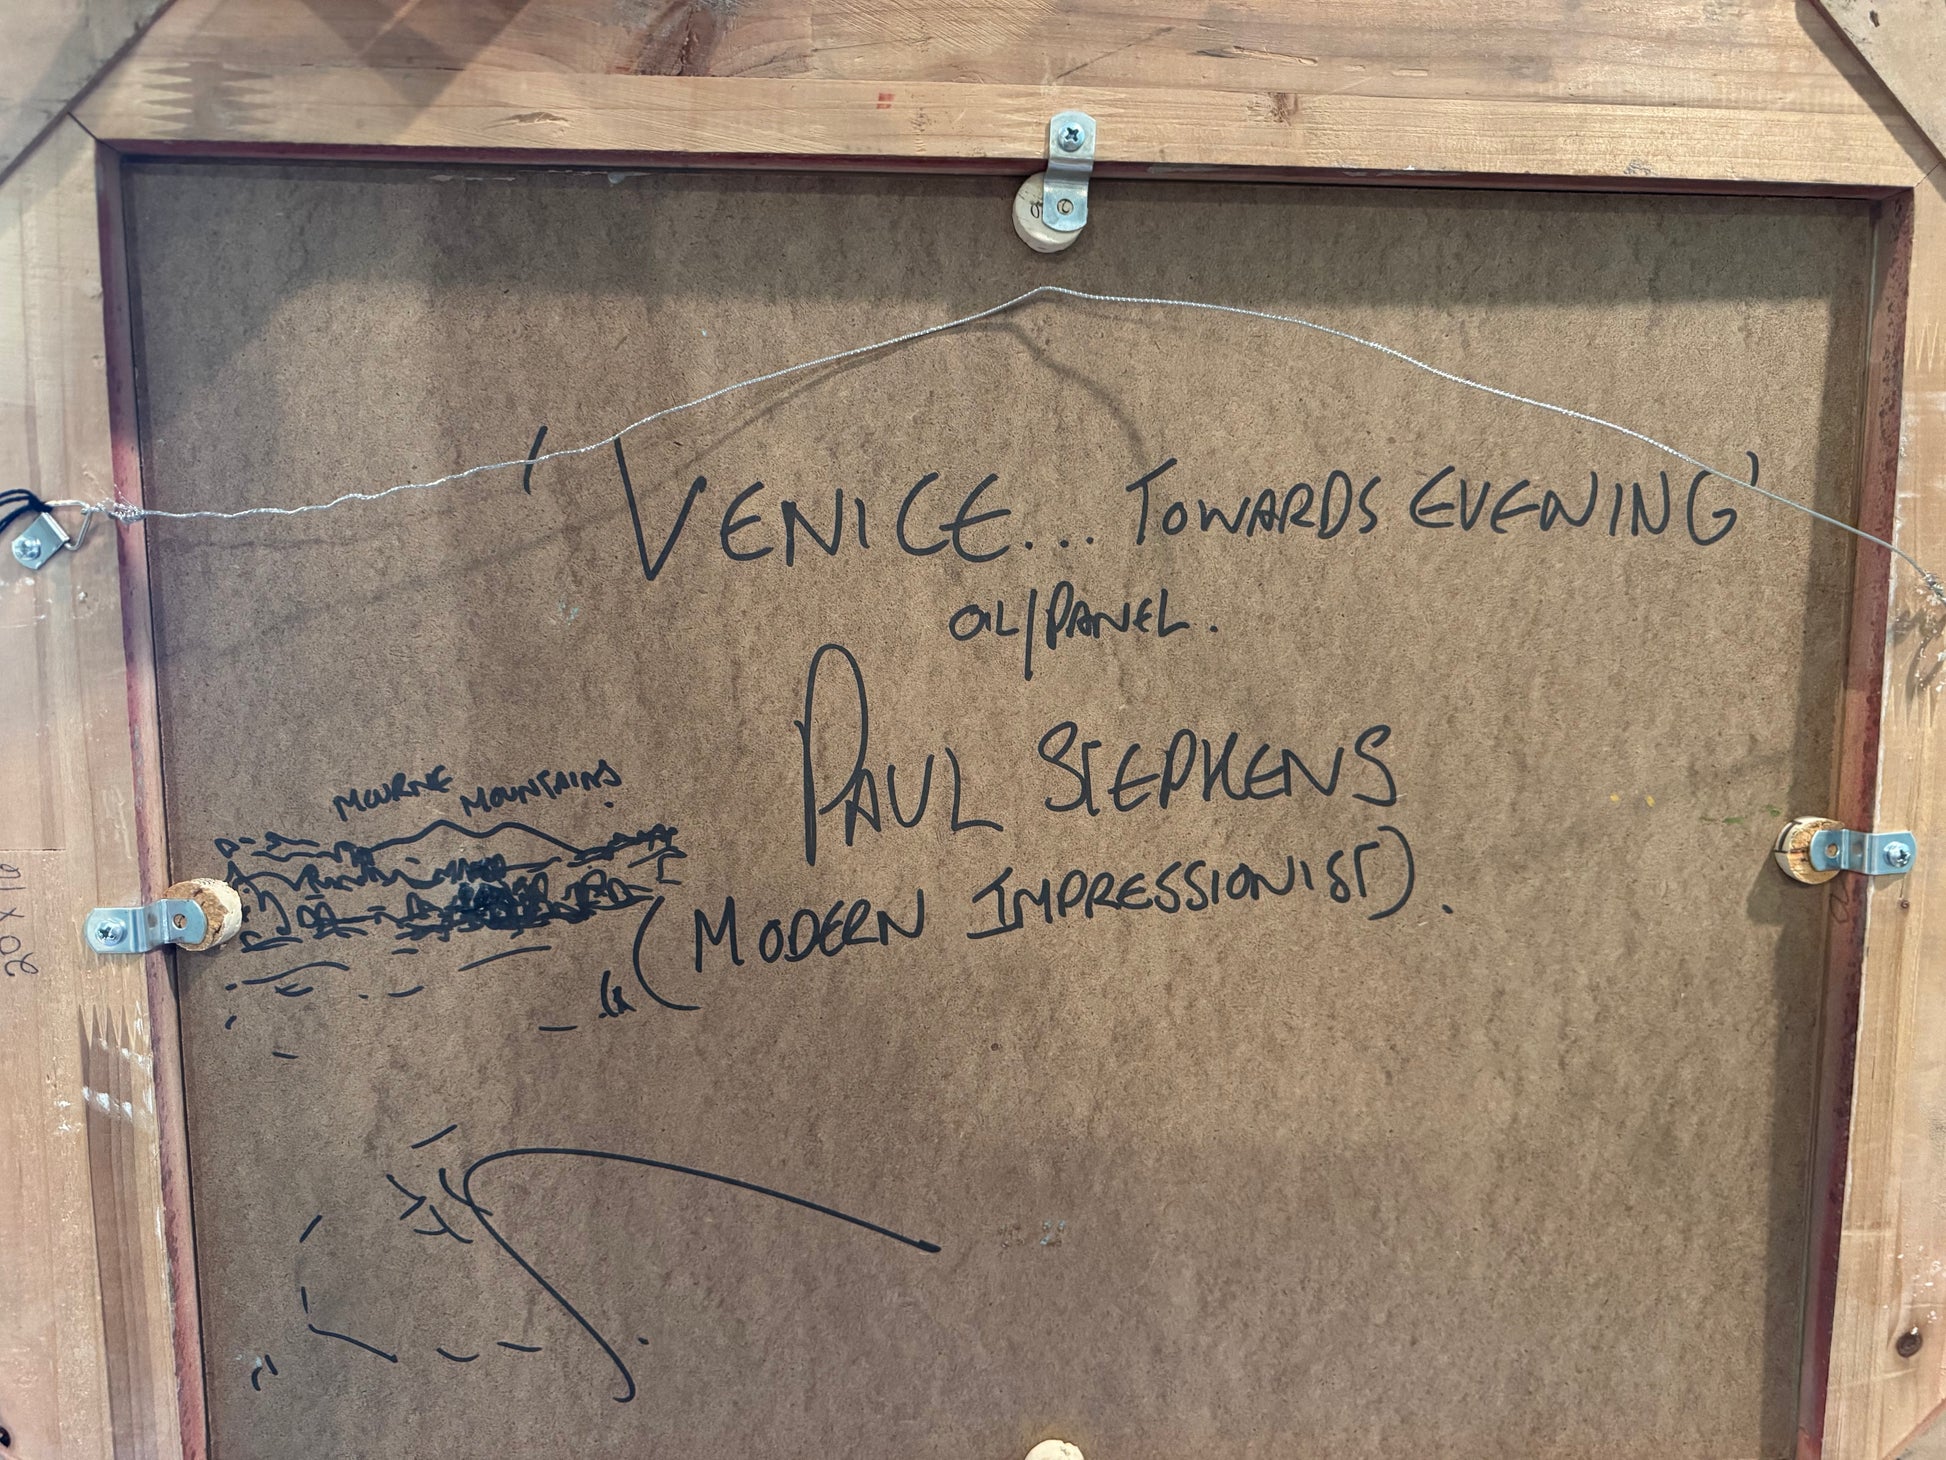 'VENICE... TOWARDS EVENING'
OIL/PANEL.
PAUL STEPHENS
(MODERN IMPRESSIONIST).
MOURNE MOUNTAINS.
20 x 16